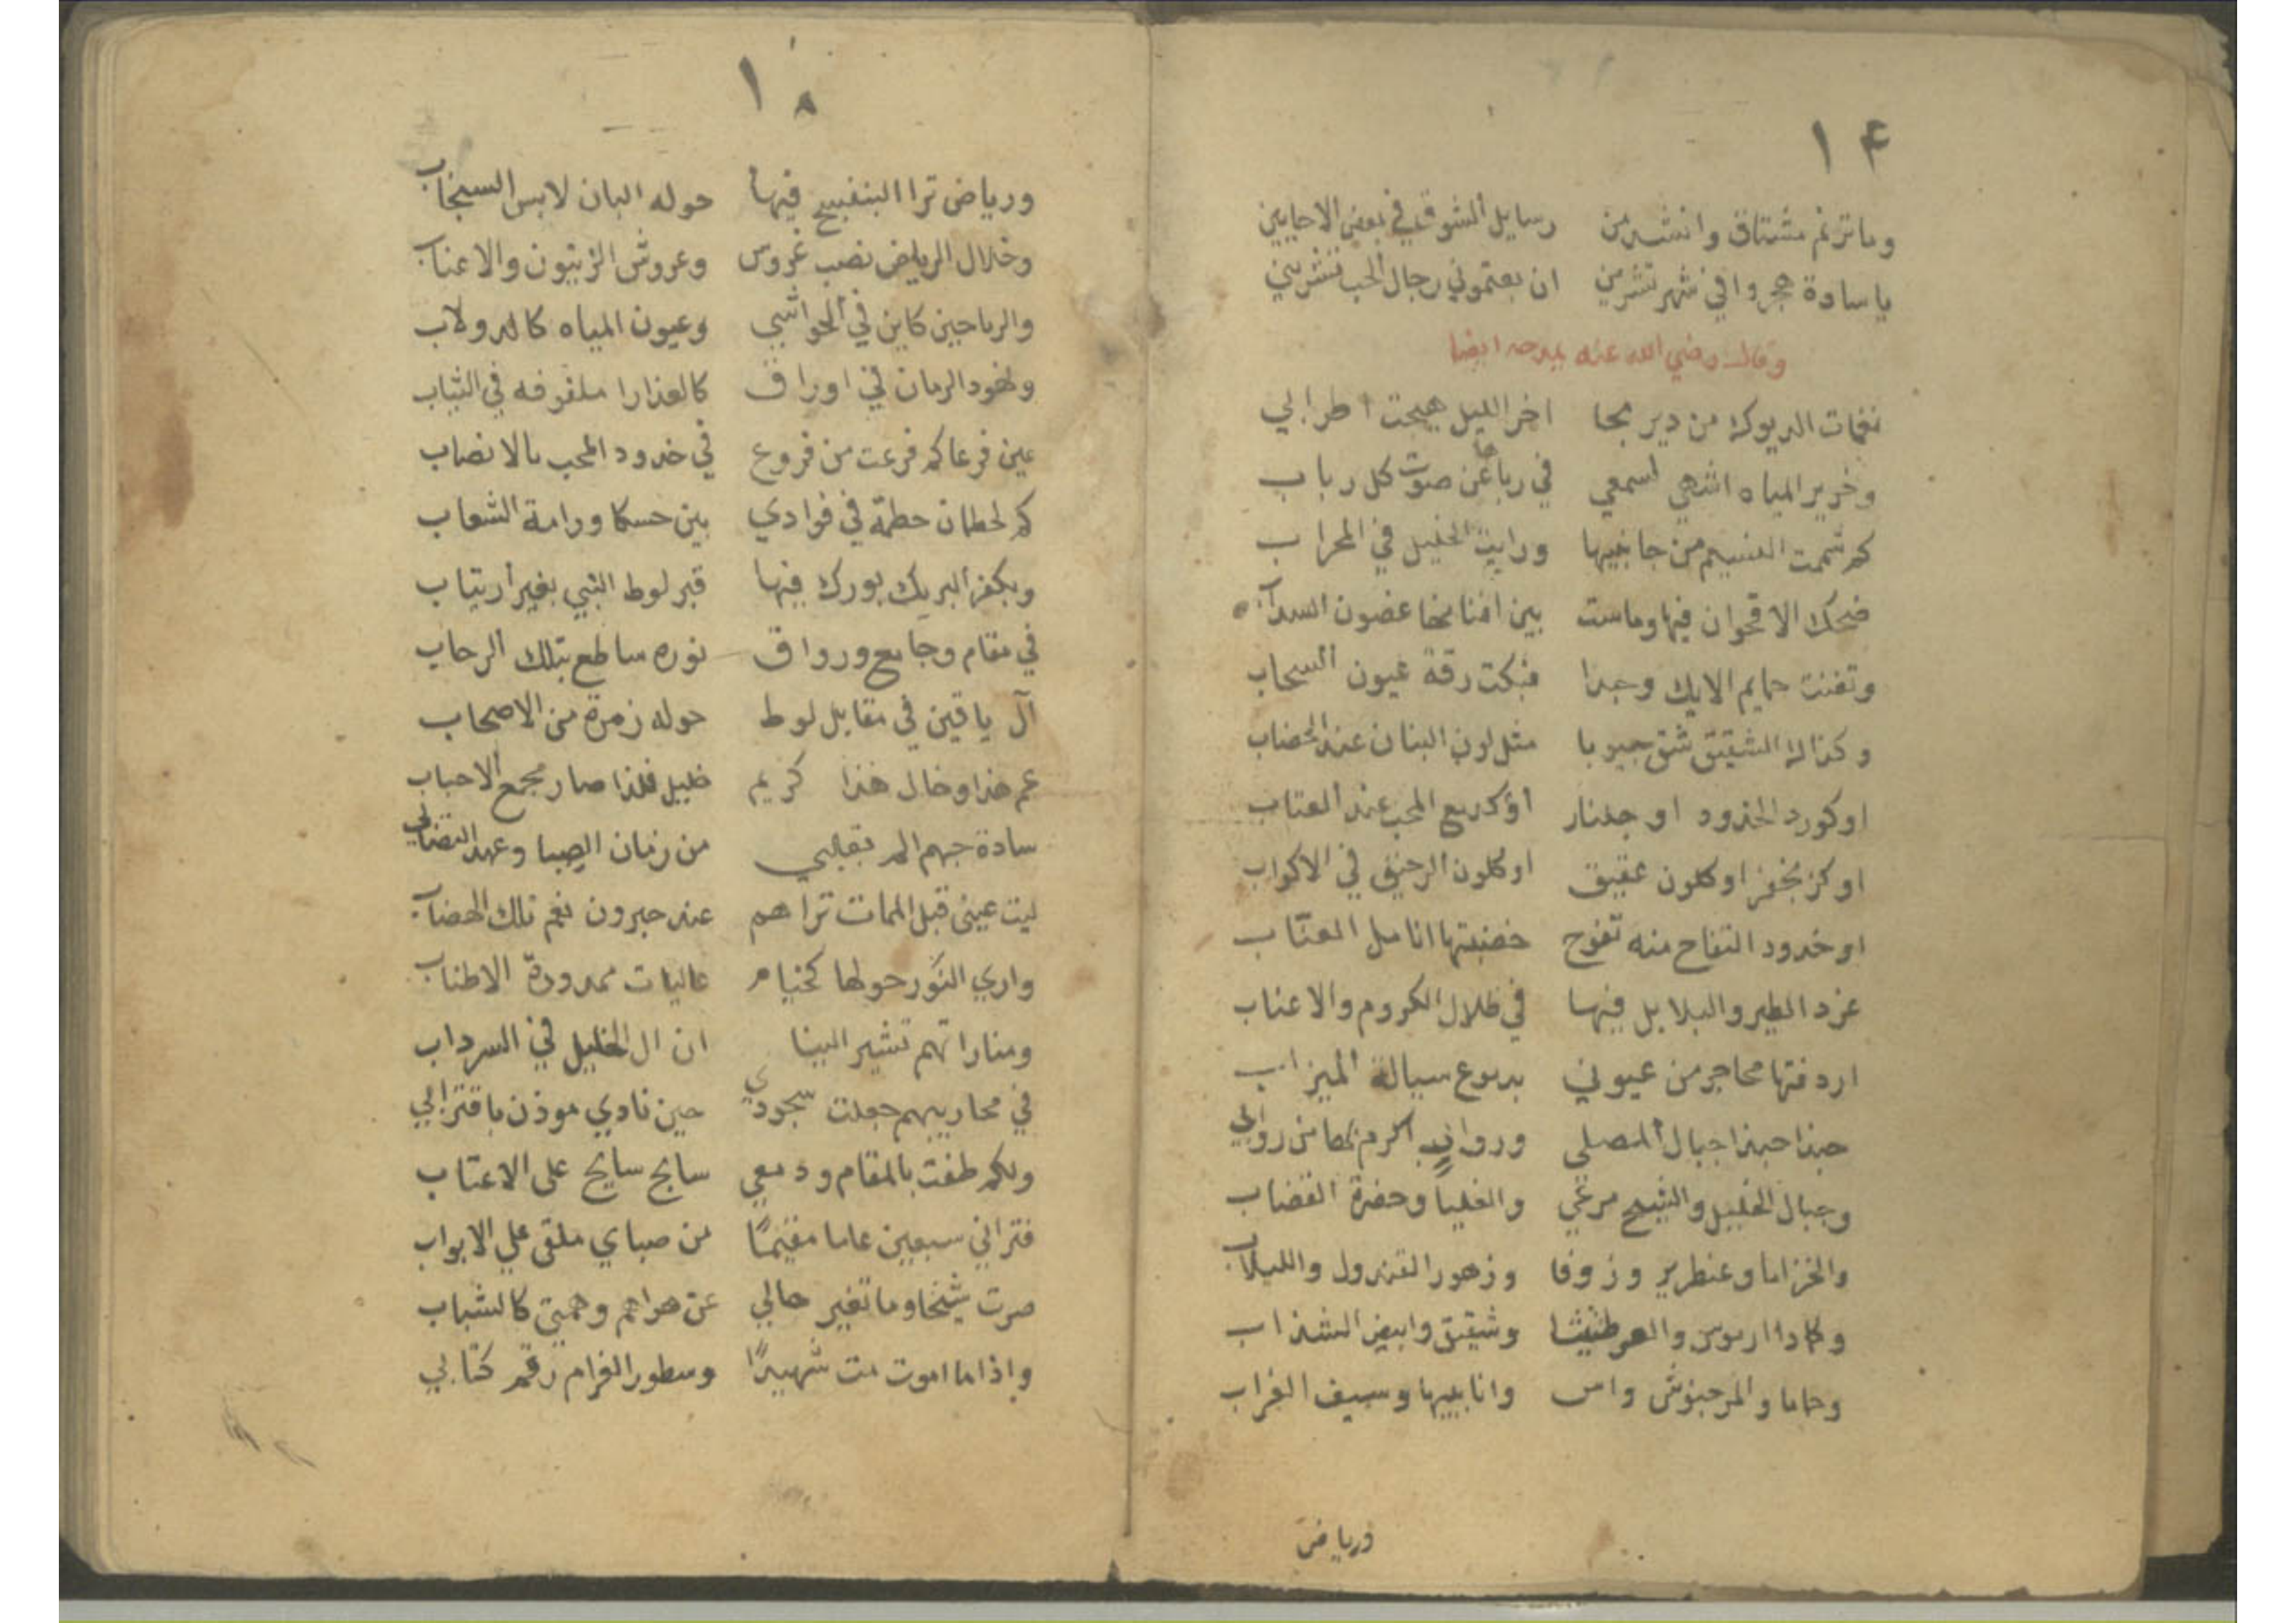 ١٤
وما ترنم مشتاق وانشد من رسايل الشوق في بعض الاحايين
يا سادة هجروا في شهر تشرين ان بعتموني رجال الحب تشريني
وقال رضي الله عنه يمدحه ايضا
نغمات الديوك من دير بحا اخر الليل هيجت اطرابي
وخرير المياه اشهي لسمعي في رباها عن صوت كل رباب
كم شممت النسيم من جانبيها ورايت الخليل في المحراب
ضحك الاقحوان فيها وماست بين افنانها غضون السداب
وتغنت حمايم الايك وجدا فبكت رقة عيون السحاب
وكذاك الشقيق شق جيوبا مثل لون البنان عند الخضاب
او كورد الخدود او جلنار او كدمع المحب عند العتاب
او كزنجفر او كلون عقيق او كلون الرحيق في الاكواب
او خدود التفاح منه تفوح خضبتها انامل العتاب
غرد الطير والبلابل فيها في ظلال الكروم والاعناب
اردفتها محاجر من عيوني بدموع سيالة الميزاب
حبذا حبذا جبال المصلى وروابي اكرم بها من روابي
وجبال الخليل والشيح مرغي والغليا وحضرة القضاب
والخزاما وعنطرير وزوفا وزهور القندول واللبلاب
وشقيق وابيض الشذاب
وحاما والمرجنوش واس وانابيبها وسيف الغراب
ورياض
١٨
ورياض ترا البنفسج فيها حوله البان لابس السنجاب
وخلال الرياض نصب غروس وعروش الزيتون والاعناب
والرياحين كاين في الحواشي وعيون المياه كالدولاب
ونهود الرمان في اوراق كالعذارا ملفوفه في الثياب
عين فرعا كم فرعت من فروع في خدود المحب بالانصاب
كم لحطان حطمة في فوادي بين حسكا ورامة الشعاب
وبكفر البريك بورك فيها قبر لوط النبي بغير ارتياب
في مقام وجامع ورواق نوره ساطع بتلك الرحاب
آل ياقين في مقابل لوط حوله زمرة من الاصحاب
عم هذا وخال هذا كريم خليل فلذا صار مجمع الاحباب
سادة حبهم الم بقلبي من زمان الصبا وعهد التصابي
ليت عيني قبل الممات تراهم عند حبرون نعم تلك الهضاب
واري النور حولها كخيام عاليات ممدودة الاطناب
ومناراتهم تشير الينا ان ال الخليل في السرداب
في محاريبهم جعلت سجودي حين نادي موذن باقترابي
ولكم طفت بالمقام ودمعي سابح سايح على الاعتاب
فتراني سبعين عاما مقيمًا من صباي ملقى علي الابواب
صرت شيخا وما تغير حالي عن هواهم وهمتي كالشباب
واذا ما اموت مت شهيدًا وسطور الغرام رقم كتابي